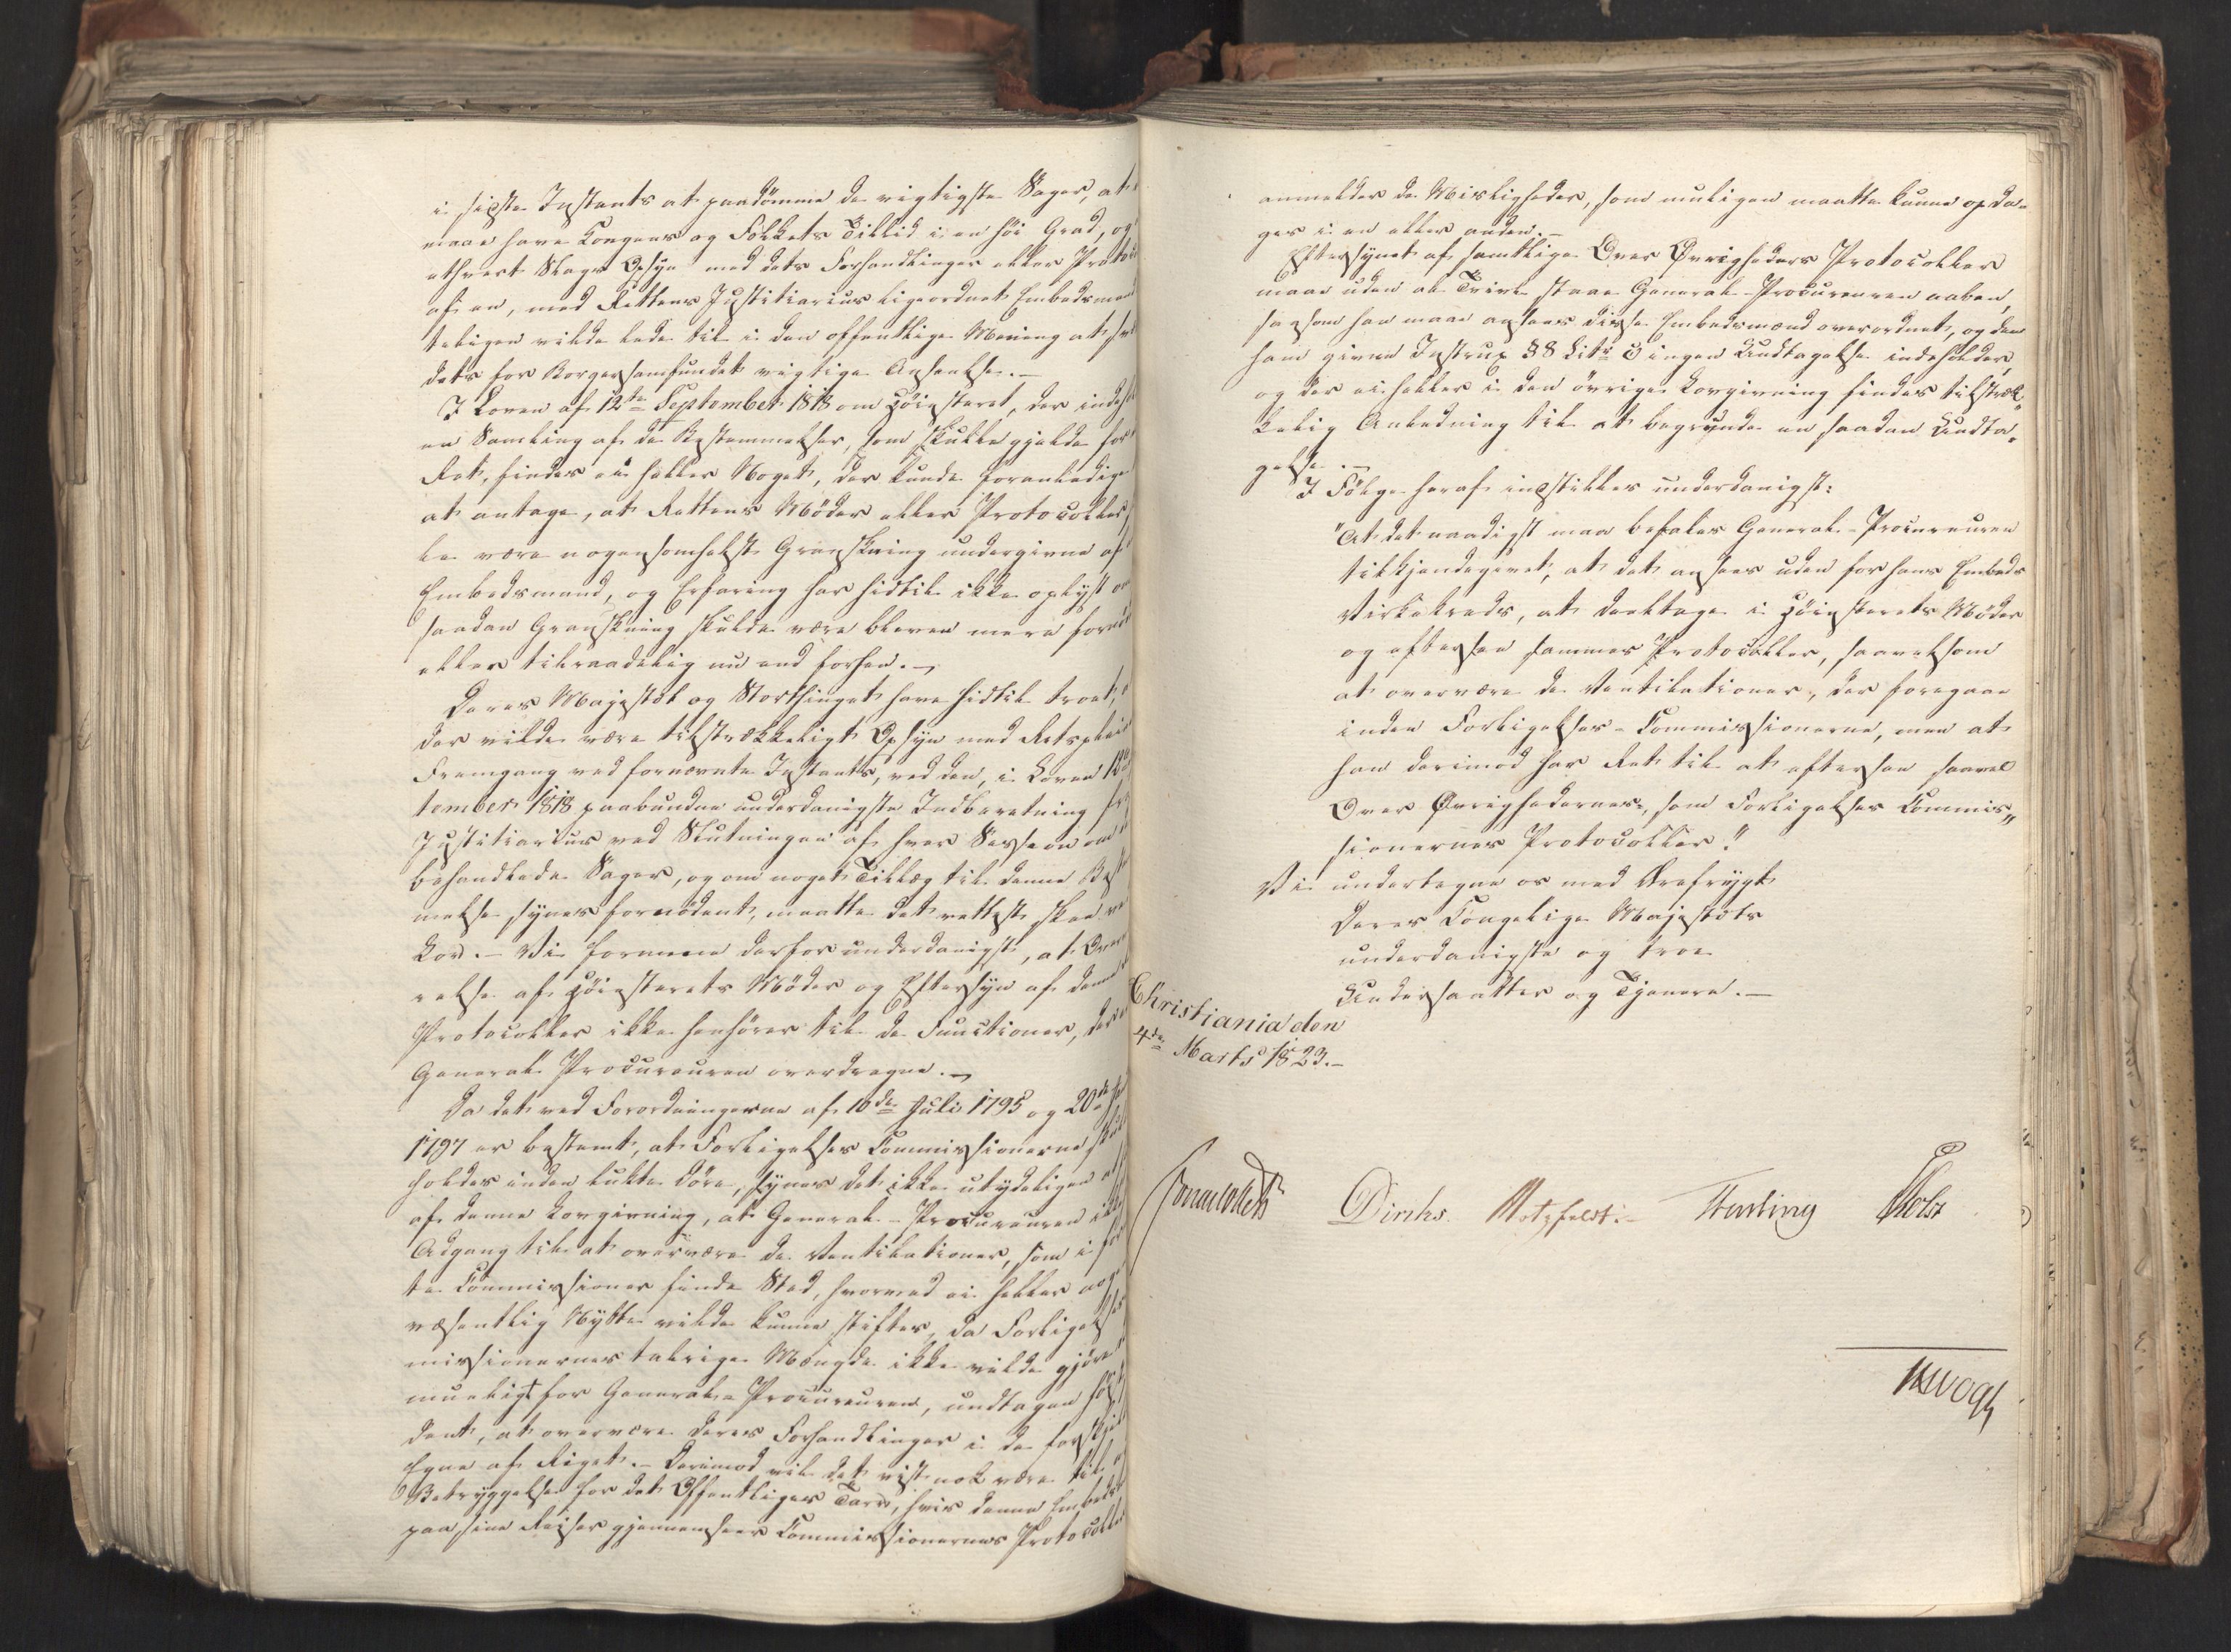 i sidste Instants at paadömme de vigtigste Sager, at
maae have Kongens og Folkets Tillid i en höi Grad, og
ethvert Slags Opsyn med dets Forhandlinger eller Proto
af en, med Rettens Justitiarius ligeordnet Embedsmand
teligen vilde lede til i den offentlige Mening at
dets for Borgersamfundet vigtige Anseelse.-
I Loven af 12te September 1818 om Höiesteret, der indeh
en Samling af de Bestemmelser, som skulle gjelde for
Ret, findes ei heller Noget, der kunde foranledige
at antage, at Rettens Möder eller Protocoller
le være nogensomhelst Granskning undergivne af
Embedsmand, og Erfaring har hidtil ikke oplyst
saadan Granskning skulde være bleven mere forn
eller tilraadelig nu end forhen.-
Deres Majestæt og Storthinget have hidtil troet,
der vilde være tilstrækkeligt Opsyn med Retspleie
Fremgang ved fornævnte Instants, ved den, i Loven 12te
tember 1818 paabudne underdanigste Indberetning
Justitiarius ved Slutningen af hver Session om
behandlede Sager, og om noget Tillæg til denne Best
melse synes fornödent, maatte det rettest skee ve
Lov.- Vi formene derfor underdanigst, at Overv
relse af Höiesterets Möder og Eftersyn af denne
Protocoller ikke henhörer til de Functioner, der
General Procureuren overdragne.-
Da det ved Forordningerne af 10de Juli 1795 og 20de
1797 er bestemt, at Forligelses Commissionerne skul
holdes inden lukte Döre, synes det ikke utydeligen at
af denne Lovgivning, at General-Procureuren ikke
Adgang til at overvære de Ventilationer, som i
te Commissioner finde Sted, hvorved ei heller noge
væsentlig Nytte vilde kunne stiftes, da Forligels
missionernes talrige Mængde ikke vilde gjöre
mueligt for General-Procureuren, undtagen
dent, at overvære deres Forhandlinger i de forskjel
Egne af Riget.- Derimod vil det vistnok være til
Betryggelse for det Offentliges Tarv, hvis denne Embeds
paa sine Reiser gjennemseer Commissionernes Protocoller
anmelder de Misligheder, som muligen maatte kunne opda-
ges i en eller anden.-
Eftersynet af samtlige Over Övrigheders Protocoller
maae uden al Tvivl staae General-Procureuren aaben,
saasom han maae ansees disse Embedsmænd overordnet, og den
ham givne Instrux §8 Litr ingen Undtagelse indeholder,
og der ei heller i den övrige Lovgivning findes tilstræk-
kelig Anledning til at begrunde en saadan Undta-
gelse.-
I Fölge heraf indstilles underdanigst:
"At det naadigst maa befales General-Procureuren
tilkjendegivet, at det ansees uden for hans Embeds
Virkekreds, at deeltage i Höiesterets Möder
og eftersee sammes Protocoller, saavelsom
at overvære de Ventilationer, der foregaae
inden Forligelses-Commissionerne, men at
han derimod har Ret til at eftersee saavel
Over Övrighedernes, som Forligelses Commis-
sionernes Protocoller."
Vi undertegne os med Ærefrygt
Deres Kongelige Majestæts
underdanigste og troe
Undersaatter og Tjenere.-
Christiania den
4de Marts 1823.-
Jonas Collett Diriks. Motzfeldt.- Fasting Holst
Vogt